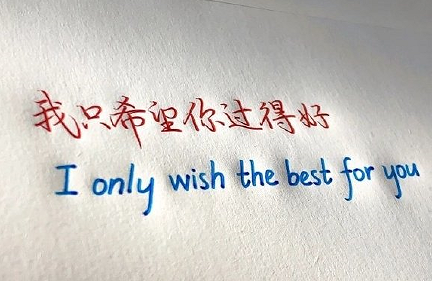 我只希望你过得好
I only wish the best for you